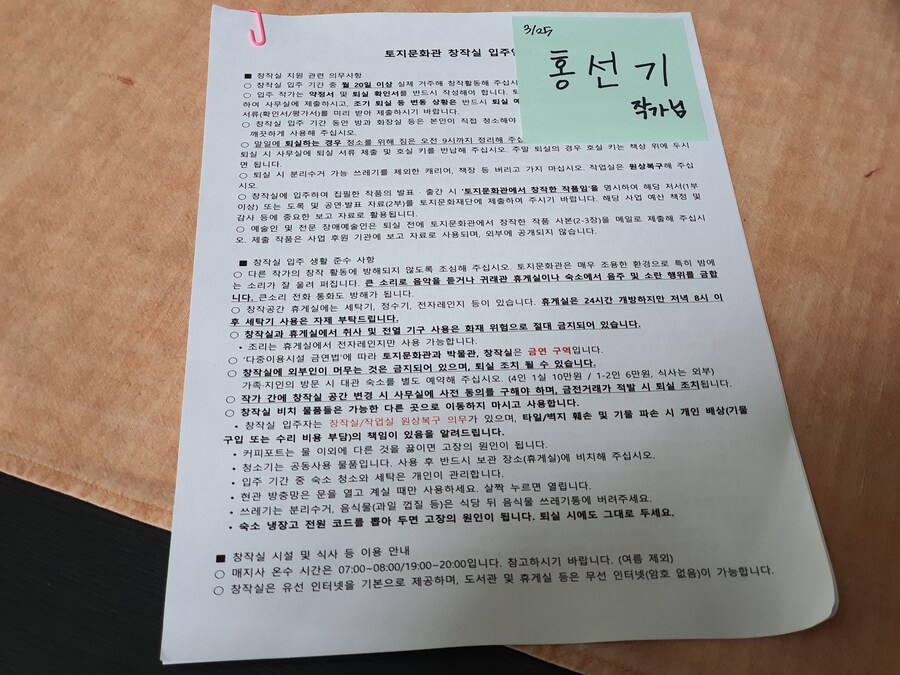 3/25
홍선기
작가님
토지문화관 창작실 입주
■ 창작실 지원 관련 의무사항
○ 창작실 입주 기간 중 월 20일 이상 실제 거주해 창작활동해 주십시
○ 입주 작가는 약정서 및 퇴실 확인서를 반드시 작성해야 합니다.
하며 사무실에 제출하시고, 조기 퇴실 등 변동 상황은 반드시 퇴실 예
서류(확인서/평가서)를 미리 받아 제출하시기 바랍니다.
○ 창작실 입주 기간 동안 방과 화장실 등은 본인이 직접 청소해야
깨끗하게 사용해 주십시오.
○ 말일에 퇴실하는 경우 청소를 위해 짐은 오전 9시까지 정리해 주십
퇴실 시 사무실에 퇴실 서류 제출 및 호실 키를 반납해 주십시오. 주말 퇴실의 경우 호실 키는 책상 위에 두시
면 됩니다.
○ 퇴실 시 분리수거 가능 쓰레기를 제외한 캐리어, 책장 등 버리고 가지 마십시오. 작업실은 원상복구해 주십
시오.
○ 창작실에 입주하여 집필한 작품의 발표 · 출간 시 '토지문화관에서 창작한 작품임'을 명시하여 해당 저서(1부
이상) 또는 도록 및 공연·발표 자료(2부)를 토지문화재단에 제출하여 주시기 바랍니다. 해당 사업 예산 책정 및
감사 등에 중요한 보고 자료로 활용됩니다.
○ 예술인 및 전문 장애예술인은 퇴실 전에 토지문화관에서 창작한 작품 사본(2-3장)을 메일로 제출해 주십시
오. 제출 작품은 사업 후원 기관에 보고 자료로 사용되며, 외부에 공개되지 않습니다.
■ 창작실 입주 생활 준수 사항
○ 다른 작가의 창작 활동에 방해되지 않도록 조심해 주십시오. 토지문화관은 매우 조용한 환경으로 특히 밤에
는 소리가 잘 울려 퍼집니다. 큰 소리로 음악을 듣거나 귀래관 휴게실이나 숙소에서 음주 및 소란 행위를 금합
니다. 큰소리 전화 통화도 방해가 됩니다.
○ 창작공간 휴게실에는 세탁기, 정수기, 전자레인지 등이 있습니다. 휴게실은 24시간 개방하지만 저녁 8시 이
후 세탁기 사용은 자제 부탁드립니다.
○ 창작실과 휴게실에서 취사 및 전열 기구 사용은 화재 위험으로 절대 금지되어 있습니다.
• 조리는 휴게실에서 전자레인지만 사용 가능합니다.
○ '다중이용시설 금연법'에 따라 토지문화관과 박물관, 창작실은 금연 구역입니다.
○ 창작실에 외부인이 머무는 것은 금지되어 있으며, 퇴실 조치 될 수 있습니다.
가족·지인의 방문 시 대관 숙소를 별도 예약해 주십시오. (4인 1실 10만원 / 1-2인 6만원, 식사는 외부)
○ 작가 간에 창작실 공간 변경 시 사무실에 사전 동의를 구해야 하며, 금전거래가 적발 시 퇴실 조치됩니다.
○ 창작실 비치 물품들은 가능한 다른 곳으로 이동하지 마시고 사용합니다.
• 창작실 입주자는 창작실/작업실 원상복구 의무가 있으며, 타일/벽지 훼손 및 기물 파손 시 개인 배상(기물
구입 또는 수리 비용 부담)의 책임이 있음을 알려드립니다.
• 커피포트는 물 이외에 다른 것을 끓이면 고장의 원인이 됩니다.
• 청소기는 공동사용 물품입니다. 사용 후 반드시 보관 장소(휴게실)에 비치해 주십시오.
• 입주 기간 중 숙소 청소와 세탁은 개인이 관리합니다.
• 현관 방충망은 문을 열고 계실 때만 사용하세요. 살짝 누르면 열립니다.
• 쓰레기는 분리수거, 음식물(과일 껍질 등)은 식당 뒤 음식물 쓰레기통에 버려주세요.
• 숙소 냉장고 전원 코드를 뽑아 두면 고장의 원인이 됩니다. 퇴실 시에도 그대로 두세요.
■ 창작실 시설 및 식사 등 이용 안내
○ 매지사 온수 시간은 07:00~08:00/19:00~20:00입니다. 참고하시기 바랍니다. (여름 제외)
○ 창작실은 유선 인터넷을 기본으로 제공하며, 도서관 및 휴게실 등은 무선 인터넷(암호 없음)이 가능합니다.